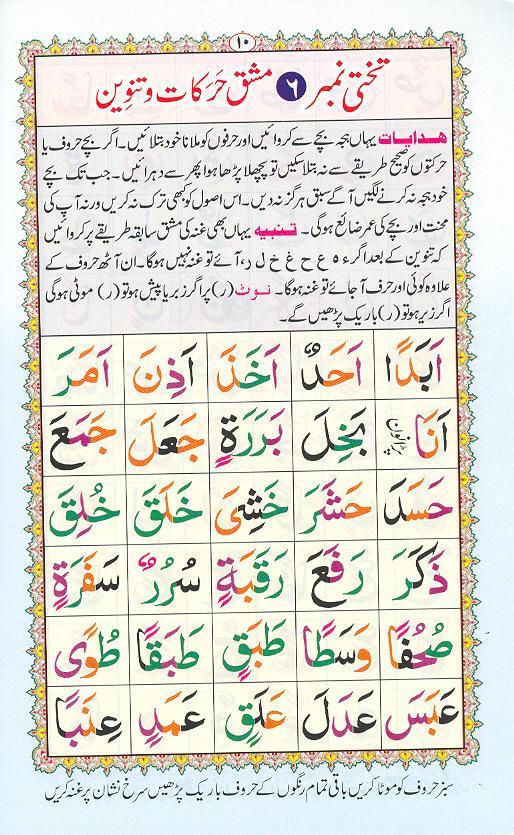 ۱۰
تختی نمبر ۶ مشق حرکات و تنوین
ھدایات یہاں ہجہ بچے سے کروائیں اور حرفوں کو ملانا خود بتلائیں۔ اگر بچے حروف یا
حرکتوں کو صحیح طریقے سے نہ بتلا سکیں تو پچھلا پڑھا ہوا پھر سے دہرائیں۔ جب تک بچے
خود ہجہ نہ کرنے لگیں آگے سبق ہرگز نہ دیں۔ اس اصول کو کبھی ترک نہ کریں ورنہ آپ کی
محنت اور بچے کی عمر ضائع ہوگی۔ تنبیہ یہاں بھی غنہ کی مشق سابقہ طریقے پر کروائیں
کہ تنوین کے بعد اگر ء ہ ع ح غ خ ل ر، آئے تو غنہ نہیں ہوگا۔ ان آٹھ حروف کے
علاوہ کوئی اور حرف آجائے تو غنہ ہوگا۔ نوٹ (ر) پر اگر زبر یا پیش ہو تو (ر) موٹی ہوگی
اگر زیر ہو تو (ر) باریک پڑھیں گے۔
اَبَدًا اَحَدٌ اَخَذَ اَذِنَ اَمَرَ
اَنَا بَخِلَ بَرَرَةٍ جَعَلَ جَمَعَ
حَسَدَ حَشَرَ خَشِیَ خَلَقَ خُلِقَ
ذَکَرَ رَفَعَ رَقَبَةٍ سُرُرٌ سَفَرَةٍ
صُحُفًا وَسَطًا طَبَقٍ طَبَقًا طُوًی
عَبَسَ عَدَلَ عَلَقٍ عَمَدٍ عِنَبًا
سبز حروف کو موٹا کریں باقی تمام رنگوں کے حروف باریک پڑھیں سرخ نشان پر غنہ کریں